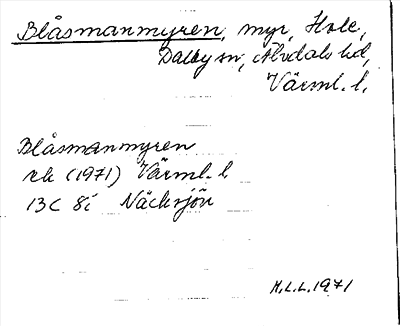 Blåsmanmyren, myr, Hole,
Dalby sn, Älvdals hd,
Värml. l.
Blåsmanmyren
rk (1971) Värml. l
13C 8i Näcksjön
M.L.L. 1971